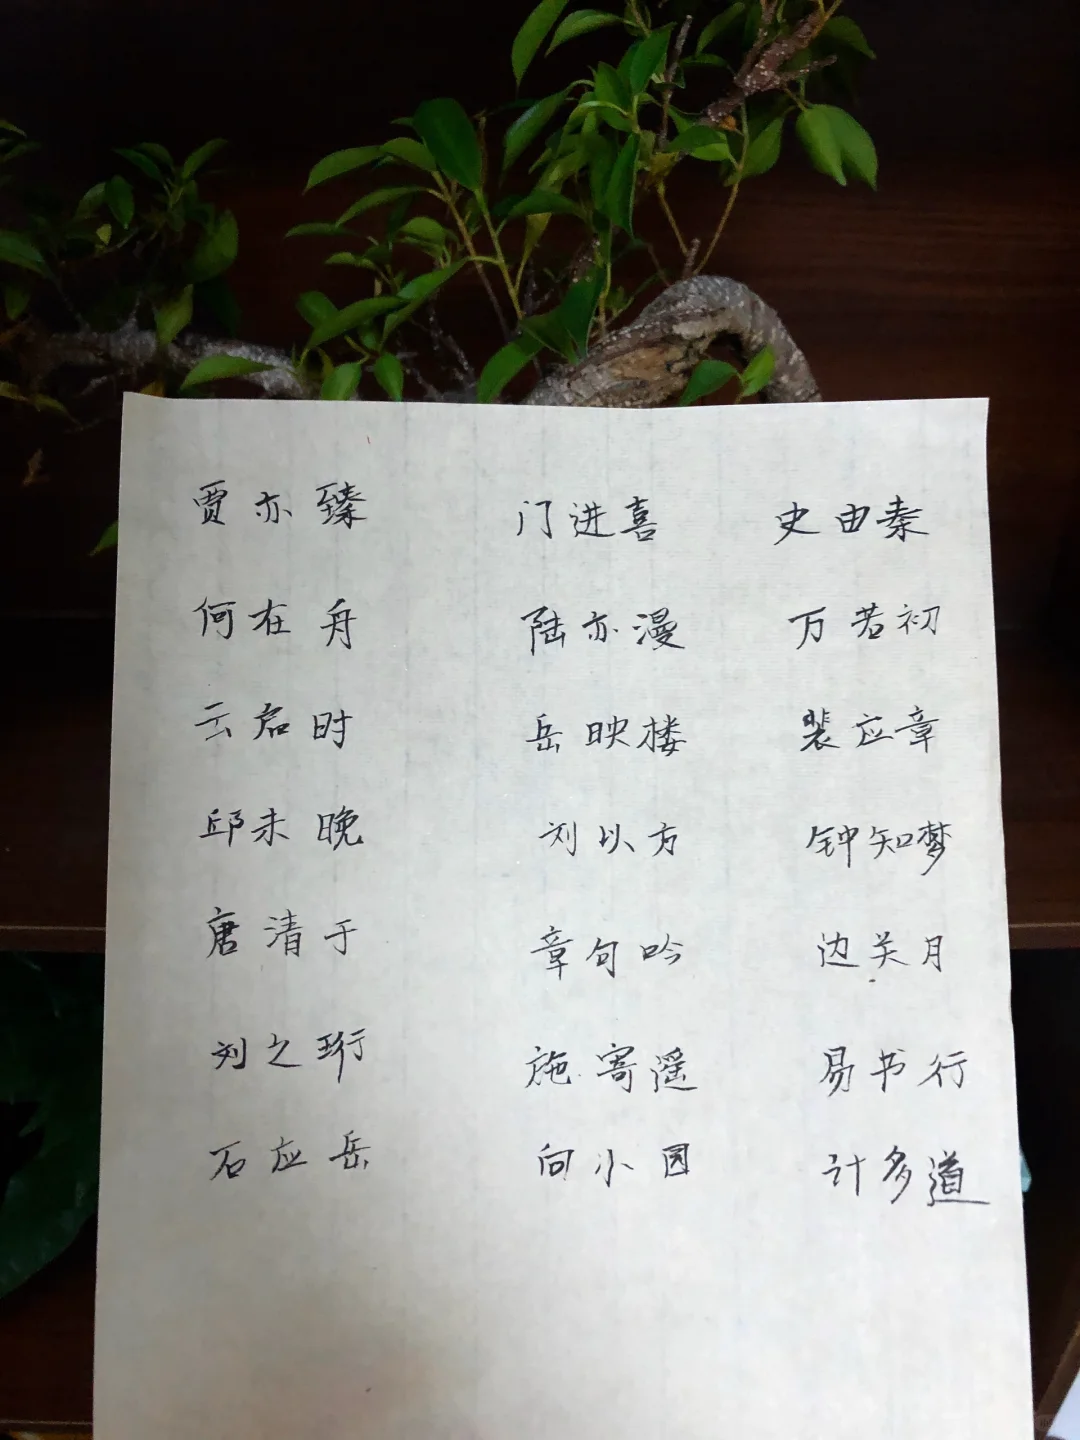 贾亦臻 门进喜 史由秦
何在舟 陆亦漫 万若初
云启时 岳映楼 裴应章
邱未晚 刘以方 钟知梦
唐清于 章句吟 边关月
刘之珩 施寄遥 易书行
石应岳 向小园 计多道